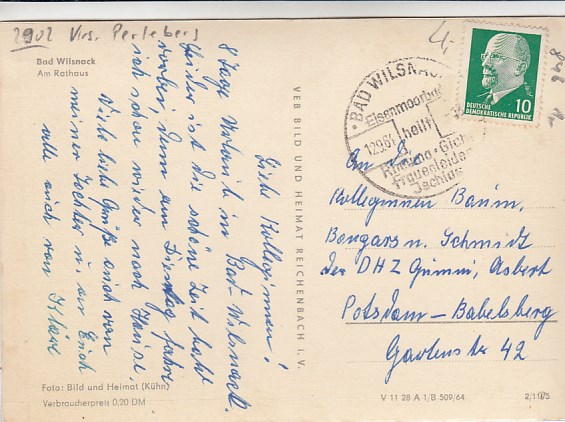 2902 Krs. Perleberg
Bad Wilsnack
Am Rathaus
Liebe Kolleginnen!
8 Tage Urlaub in Bad-Wilsnack.
Leider ist die schöne Zeit bald
vorbei, denn am Dienstag fahre
ich schon wieder nach Hause.
Viele liebe Grüße euch von
meiner Tochter u. an Euch
alle auch von
Foto: Bild und Heimat (Kühn)
Verbraucherpreis 0,20 DM
VEB BILD UND HEIMAT REICHENBACH I. V.
4,-
BAD WILSNACK
Eisenmoorbad
heilt
Rheuma · Gicht
Frauenleiden
Ischias
DEUTSCHE
DEMOKRATISCHE REPUBLIK
10
An
Kolleginnen Baum,
Bongars u. Schmidt
der DHZ Gummi, Asbest
Potsdam-Babelsberg
Gartenstr 42
V 11 28 A 1/B 509/64